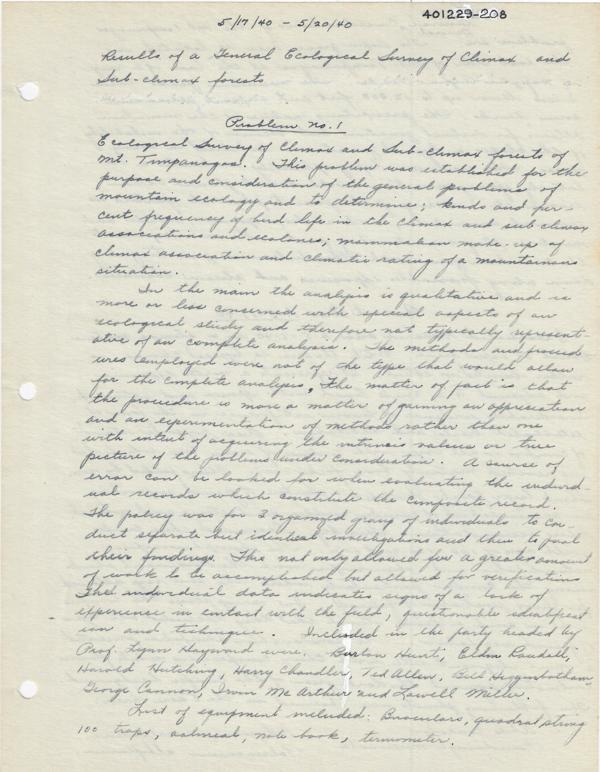 5/17/40 - 5/20/40
401229-208
Results of a General Ecological Survey of Climax and
Sub-climax forests
Problem no. 1
Ecological Survey of Climax and Sub-climax forests of
Mt. Timpanogos. This problem was established for the
purpose and consideration of the general problems of
mountain ecology and to determine; kinds and per-
cent frequency of bird life in the climax and sub climax
associations and ecotones; mammalian make-up of
climax association and climatic rating of a mountainous
situation.
In the main the analysis is qualitative and is
more or less concerned with special aspects of an
ecological study and therefore not typically represent-
ative of an complete analysis. The methods and proced-
ures employed were not of the type that would allow
for the complete analysis, The matter of fact is that
the procedure is more a matter of gaining an appreciation
and an experimentation of methods rather than one
with intent of acquiring the intrinsic values or true
picture of the problems under consideration. A source of
error can be looked for when evaluating the individ-
ual records which constitute the composite record.
The policy was for 3 organized group of individuals to con-
duct separate but identical investigations and then to pool
their findings. This not only allowed for a greater amount
of work to be accomplished but allowed for verifications
The individual data indicates signs of a lack of
experience in contact with the field, questionable
ion and technique. Included in the party headed by
Prof. Lynn Hayward were: Burton Hunt, Eldon Randall,
Harold Hutching, Harry Chandler, Ted Allen, Bill Higginbotham,
George Cannon, Irwin McArthur and Lowell Miller.
List of equipment included: Binoculars, quadrat string
100 traps, oatmeal, note book, termometer.